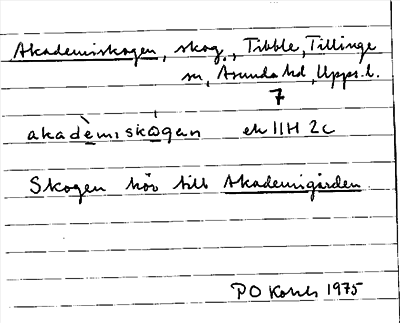 Akademiskogen, skog, Tibble, Tillinge
sn, Åsunda hd, Upps. l.
7
akadèmiskógan ek 11H 2c
Skogen hör till Akademigården
PO 1975